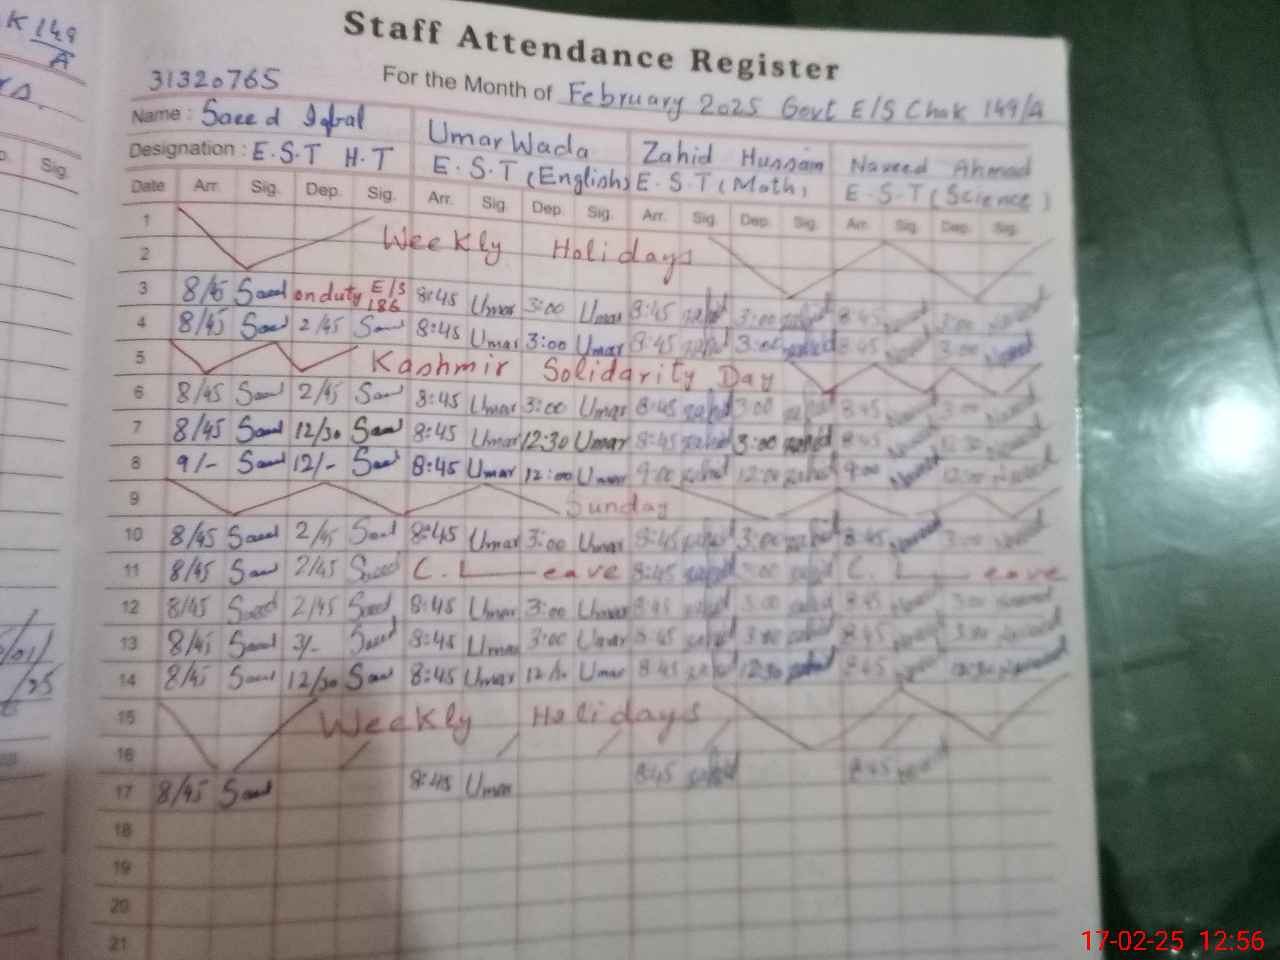 K 149
A
Staff Attendance Register
31320765
For the Month of February 2025 Govt E/S Chak 149/A
Name : Saeed Iqbal Umar Wada Zahid Hussain Naveed Ahmad
Designation : E.S.T H.T E.S.T (English) E.S.T (Math) E.S.T (Science)
Sig.
Date Arr. Sig. Dep. Sig. Arr. Sig. Dep. Sig. Arr. Sig. Dep. Sig. Arr. Sig. Dep. Sig.
1
Weekly Holidays
2
3 8/45 Saeed on duty E/S 186 8:45 Umar 3:00 Umar 8:45 zahid 3:00 zahid 8:45 Naveed 3:00 Naveed
4 8/45 Saeed 2/45 Saeed 8:45 Umar 3:00 Umar 8:45 zahid 3:00 zahid 8:45 Naveed 3:00 Naveed
5 Kashmir Solidarity Day
6 8/45 Saeed 2/45 Saeed 8:45 Umar 3:00 Umar 8:45 zahid 3:00 zahid 8:45 Naveed 3:00 Naveed
7 8/45 Saeed 12/30 Saeed 8:45 Umar 12:30 Umar 8:45 zahid 3:00 zahid 8:45 Naveed 12:30 Naveed
8 9/- Saeed 12/- Saeed 8:45 Umar 12:00 Umar 9:00 zahid 12:00 zahid 9:00 Naveed 12:00 Naveed
9 Sunday
10 8/45 Saeed 2/45 Saeed 8:45 Umar 3:00 Umar 8:45 zahid 3:00 zahid 8:45 Naveed 3:00 Naveed
11 8/45 Saeed 2/45 Saeed C. Leave 8:45 zahid 3:00 zahid C. Leave
12 8/45 Saeed 2/45 Saeed 8:45 Umar 3:00 Umar 8:45 zahid 3:00 zahid 8:45 Naveed 3:00 Naveed
13 8/45 Saeed 3/- Saeed 8:45 Umar 3:00 Umar 8:45 zahid 3:00 zahid 8:45 Naveed 3:00 Naveed
14 8/45 Saeed 12/30 Saeed 8:45 Umar Umar 8:45 zahid 12:30 zahid 8:45 Naveed 12:30 Naveed
15 Weekly Holidays
16
17 8/45 Saeed 8:45 Umar 8:45 zahid 8:45 Naveed
18
19
20
21
17-02-25 12:56